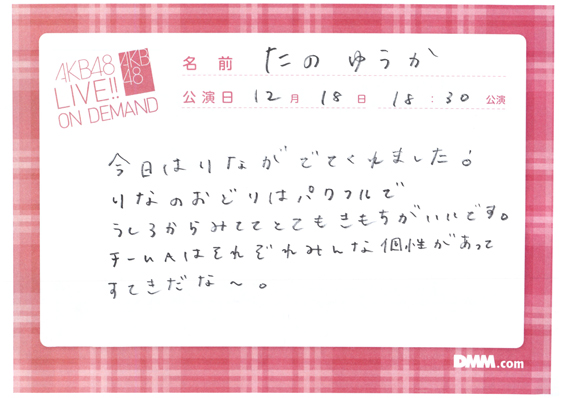 AKB48
LIVE!!
ON DEMAND
AKB
48
名前 たのゆうか
公演日 12月 18日 18:30公演
今日はりながでてくれました!
りなのおどりはパワフルで
うしろからみててとてもきもちがいいです。
チームAはそれぞれみんな個性があって
すてきだな〜。
DMM.com